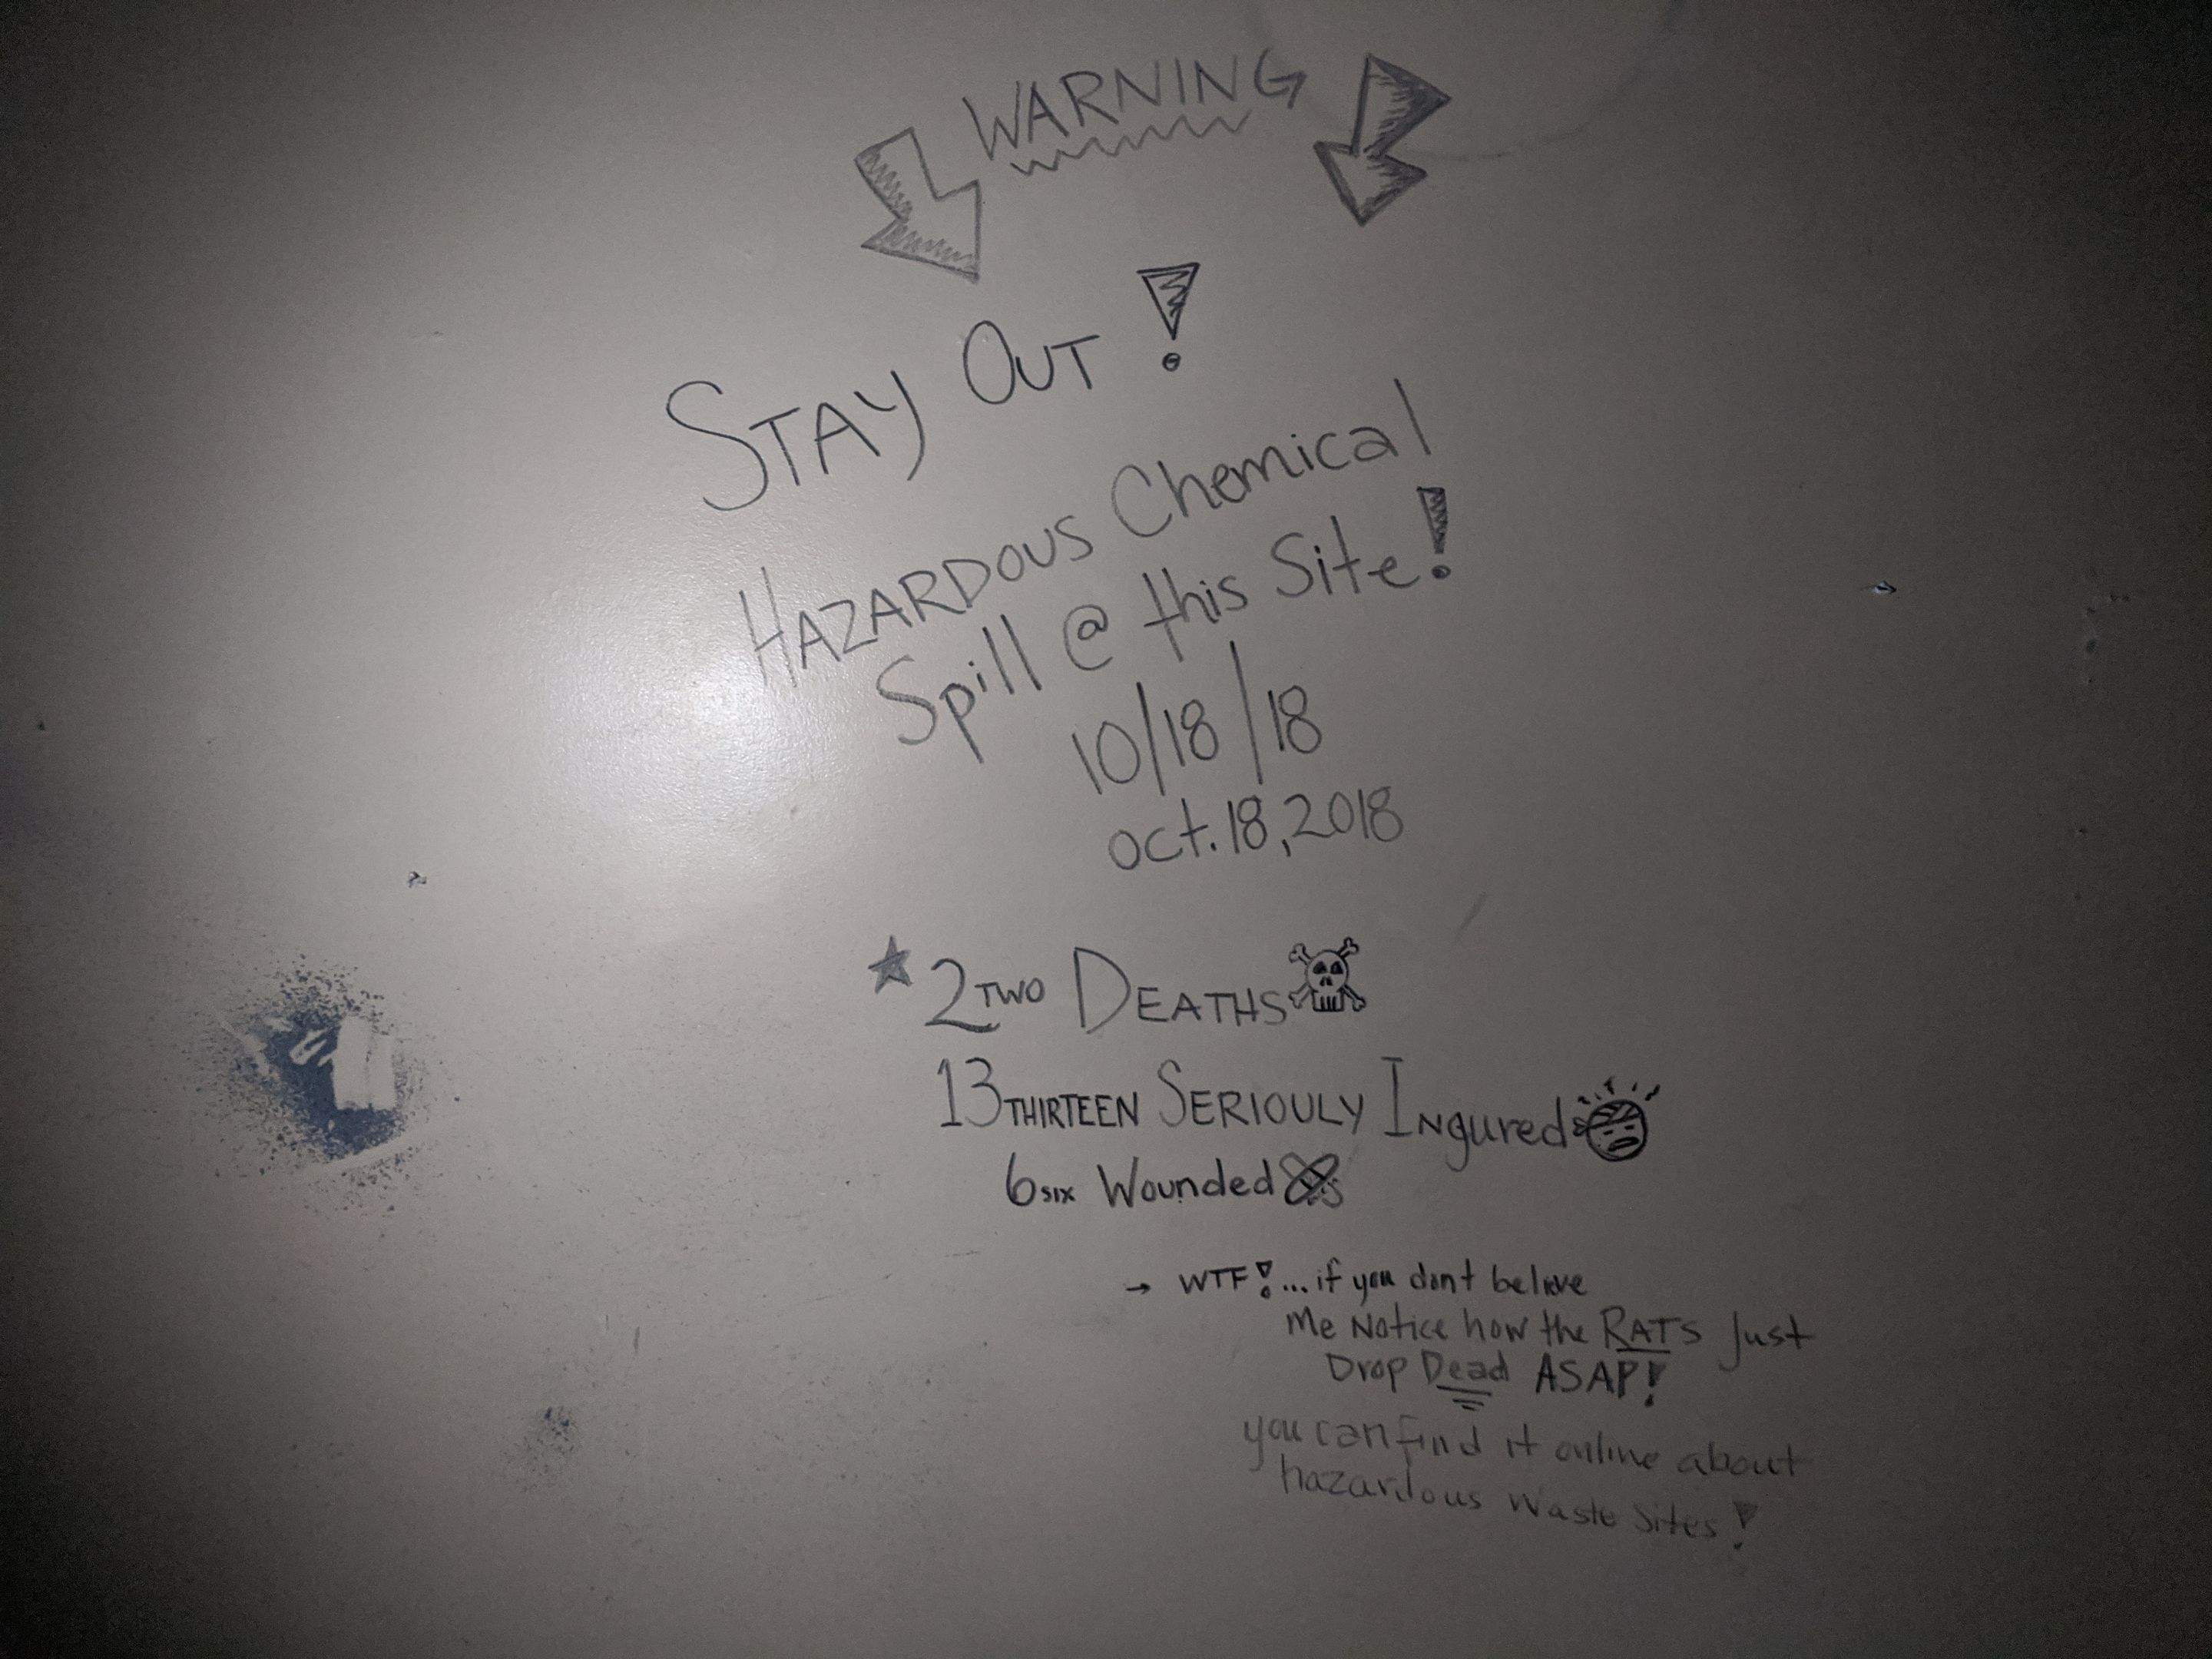 WARNING
STAY OUT!
HAZARDOUS Chemical
Spill @ this Site!
10/18/18
oct. 18, 2018
2 TWO DEATHS
13 THIRTEEN SERIOULY INgured
6 SIX Wounded
→ WTF!... if you dont belive
Me Notice how the RATS Just
Drop Dead ASAP!
you can find it online about
hazardous waste sites!